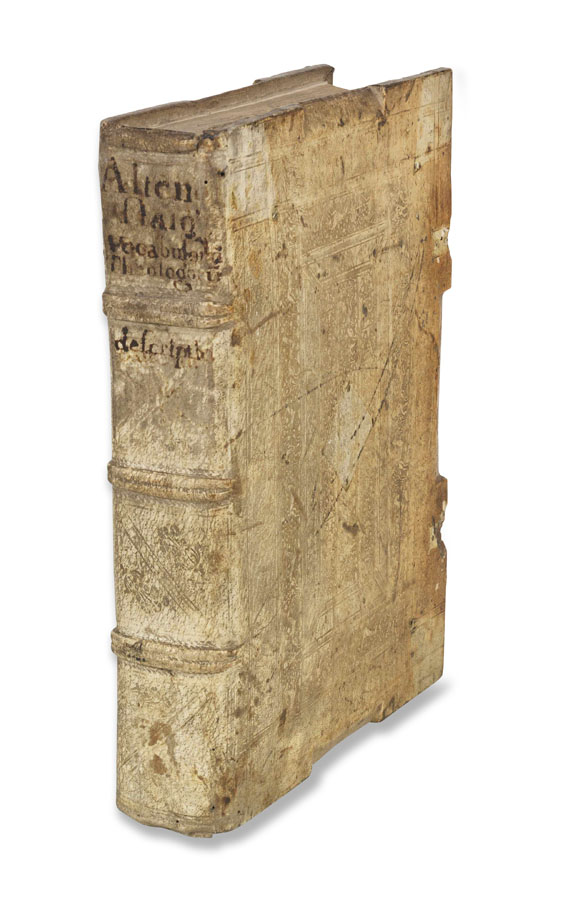 Alten
Staig
Vocabulari
Theologi
descript